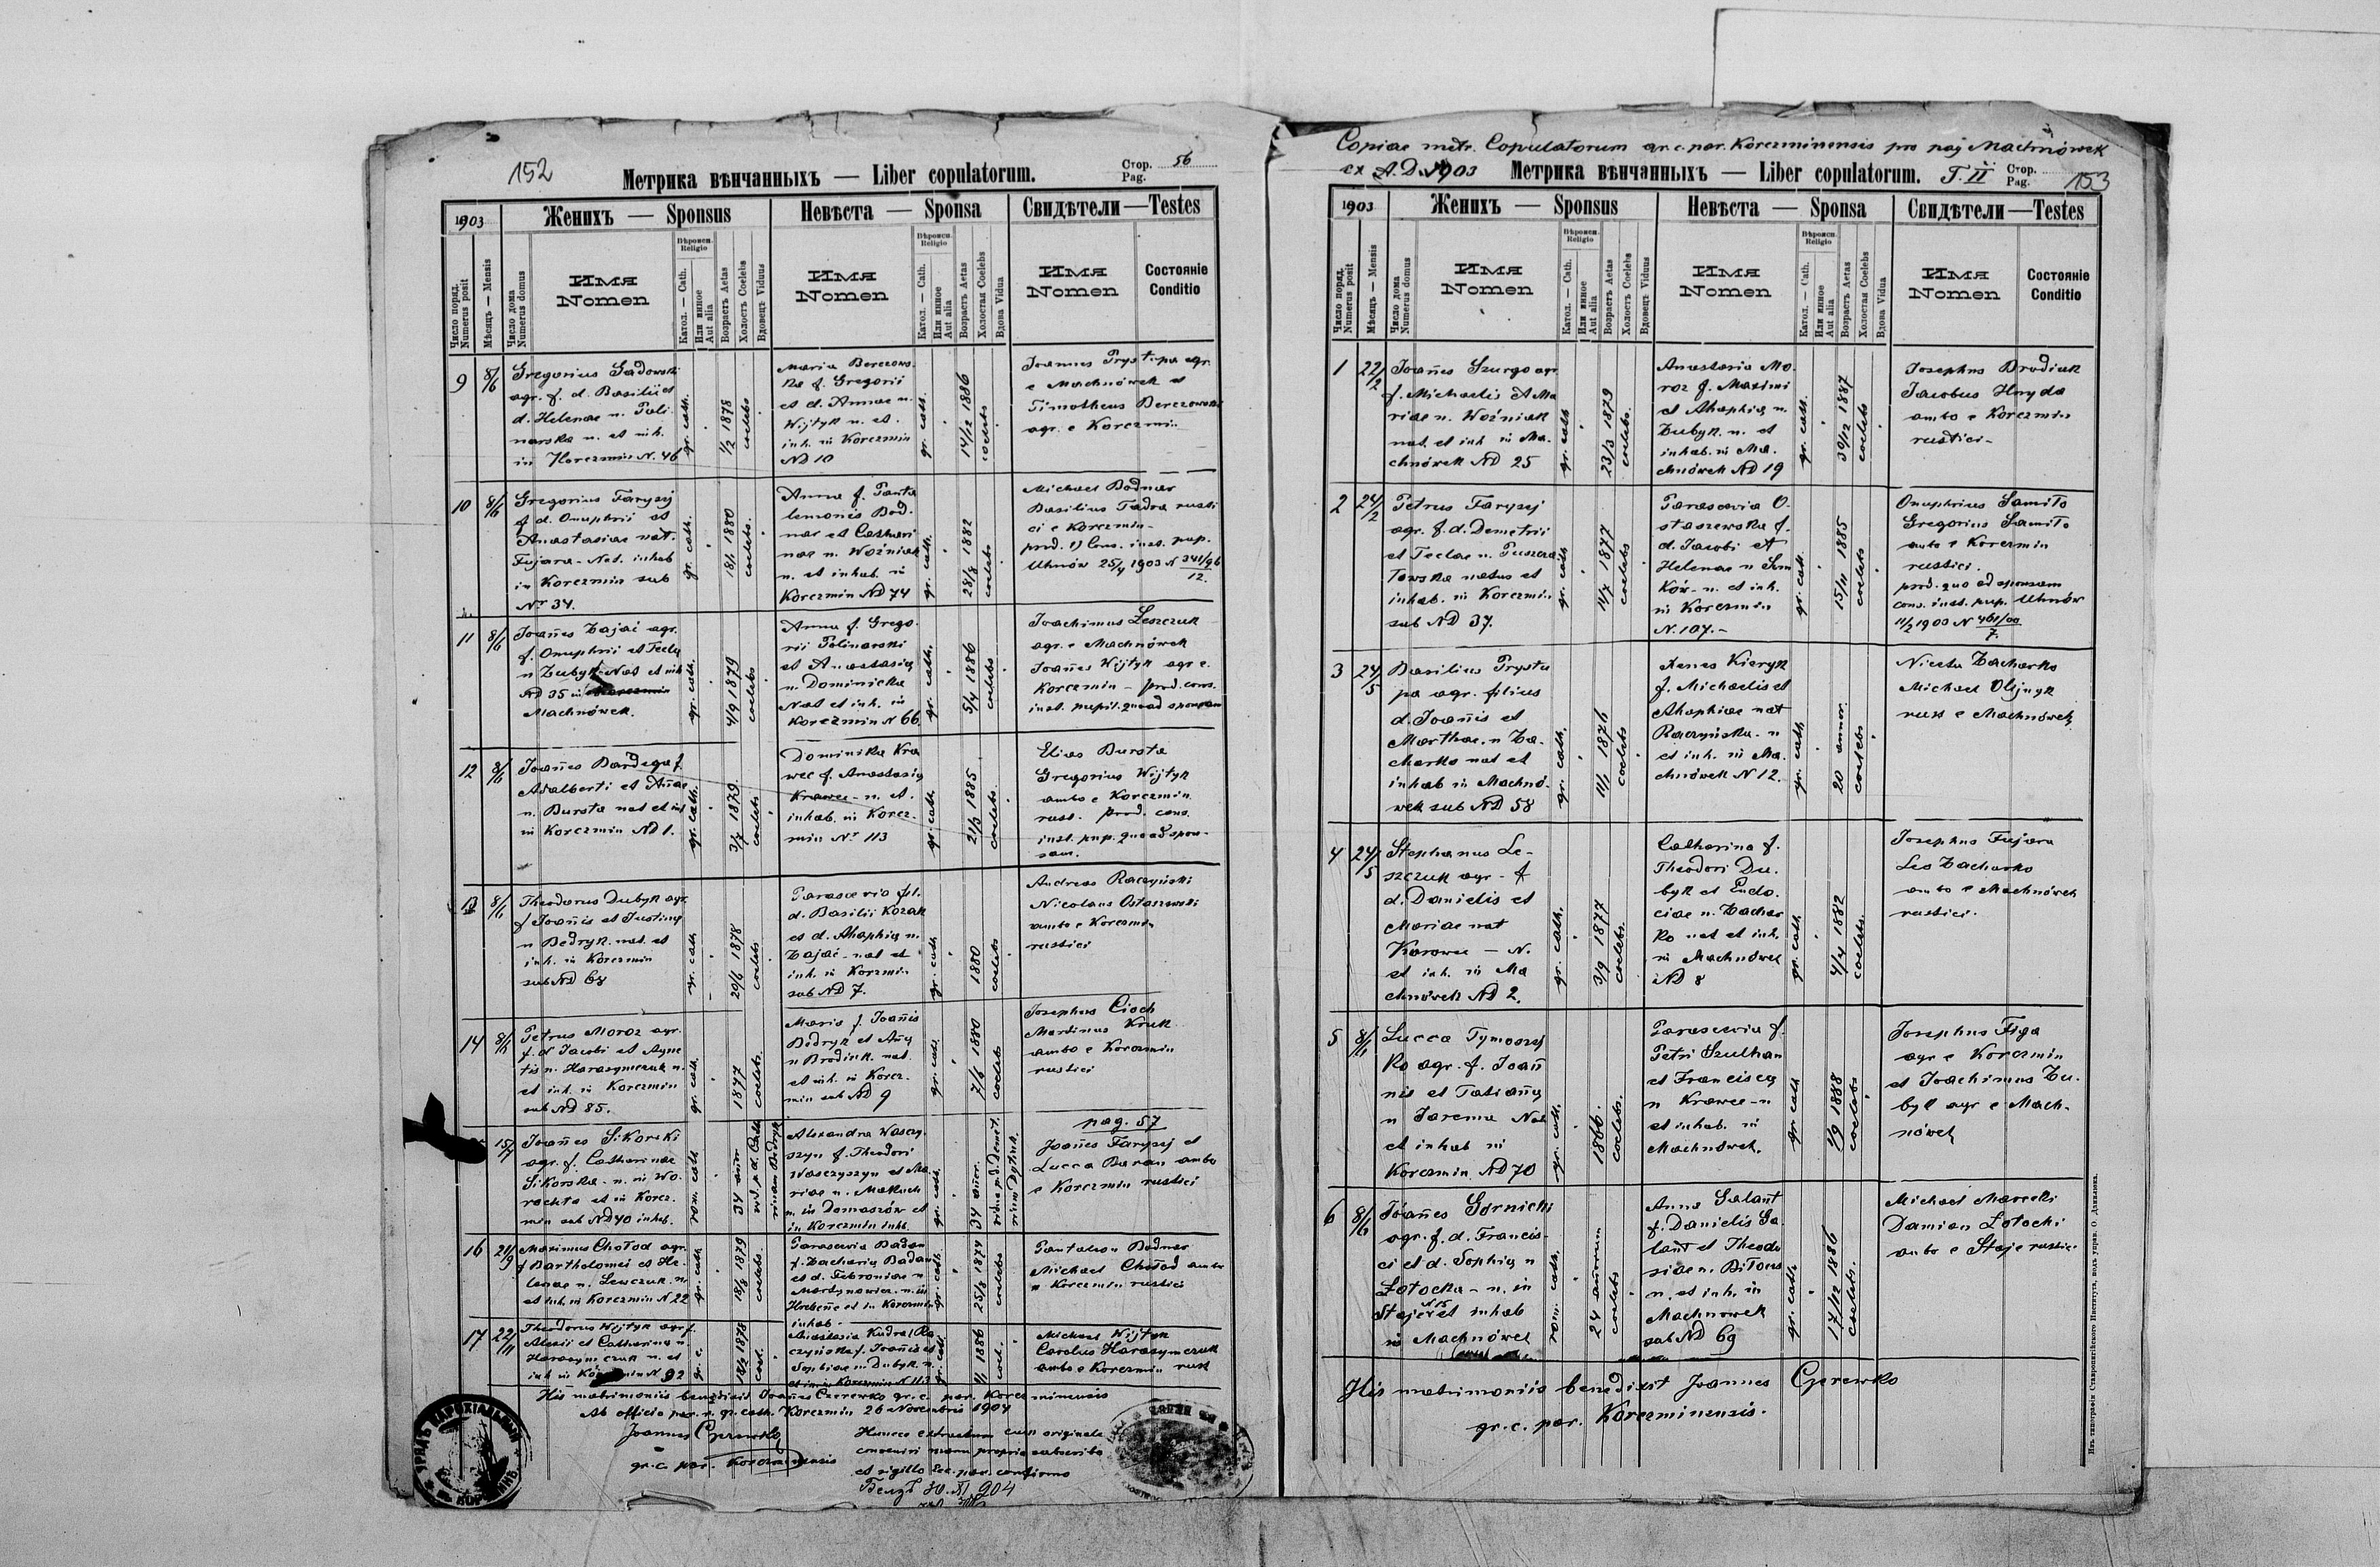 152
Метрика вѣнчанныхъ — Liber copulatorum.
Стор. Pag. 56
1903
Женихъ — Sponsus
Невѣста — Sponsa
Свидѣтели — Testes
Число поряд. Numerus posit
Мѣсяцъ — Mensis
Число дома Numerus domus
Имя Nomen
Вѣроисп. Religio
Катол. — Cath.
Или инное Aut alia
Возрастъ Aetas
Холостъ Coelebs
Вдовецъ Viduus
Имя Nomen
Вѣроисп. Religio
Катол. — Cath.
Или инное Aut alia
Возрастъ Aetas
Холостая Coelebs
Вдова Vidua
Имя Nomen
Состояніе Conditio
9
8/6
Gregorius Sadowski
agr. f. d. Basilii et
d. Helenae n. Poli
narska n. et inh.
in Korczmin N. 46
gr. cath.
1/2 1878
coelebs
Maria Berezows
ka f. Gregorii
et d. Annae n.
Wijtyk n. et
inh. in Korczmin
ND 10
gr. cath.
14/12 1886
coelebs
Joannes Prystupa agr.
e Machnówek et
Timotheus Berezowski
agr. e Korczmin
10
8/6
Gregorius Farysej
f. d. Onuphrii et
Anastasiae nat.
Fujara - Nat. inhab
in Korczmin sub
Nr 34.
gr. cath.
18/1 1880
coelebs.
Anna f. Panta
lemonis Bod
nar et Cathari
nae n. Woźniak
n. et inhab. in
Korczmin ND 74
gr. cath.
28/8 1882
coelebs
Michael Bodnar
Basilius Fadra rusti
ci e Korczmin -
prod. 1) Cons. inst. pup.
Uhnów 25/4 1903 N 341/96
12.
11
8/6
Joañes Zajać agr.
f. Onuphrii et Tecla
n Zubyk Nat et inh
ND 35 in
Machnówek.
gr. cath.
4/9 1879
coelebs
Anna f. Grego
rii Polinarski
et Anastasia
n. Dominicka
Nat et inh. in
Korczmin N 66.
gr. cath.
5/4 1886
coelebs
Joachimus Leszczuk
agr. e Machnówek
Joañes Wijtyk agr e.
Korczmin - prod. cons.
inst. pupil. quoad sponsam
12
8/6
Joañes Bardega f.
Adalberti et Añae
n. Bursta nat et inh
in Korczmin ND 1.
gr. cath.
3/7 1879.
coelebs
Dominika Kra
wec f. Anastasia
Krawec - n. et.
inhab. in Korcz
min Nr 113
gr. cath.
21/3 1885
coelebs
Elias Bursta
Gregorius Wijtyk
ambo e Korczmin
rust. prod. cons.
inst. pup. quoad spon-
sam.
13
8/6
Theodorus Dubyk agr.
f Joañis et Justina
n Bedryk. nat. et
inh. in Korczmin
sub ND 68
gr. cath
20/6 1878
coelebs
Parascevia fil.
d. Basilii Kozak
et d. Ahaphia n.
Zajać - nat et
inh. in Korczmin
sub ND 7.
gr. cath
1880
coelebs
Andreas Raczyński
Nicolaus Ostaszewski
ambo e Korczmin
rustici
14
8/6
Petrus Moroz agr.
f. d Jacobi et Agne
tis n. Harasymczuk n.
et inh. in Korczmin
sub ND 85.
gr. cath
1877
coelebs.
Maria f. Joañis
Bedryk et Aña
n Brodiuk nat.
et inh. in Korcz
min sub ND 9
gr. cath.
7/6 1880
coelebs
Josephus Cioch
Martinus Kruk
ambo e Korczmin
rustici
15/7
Joañes Sikorski
agr. f. Catharinae
Sikorska - n. in Wo
rochta et in Korcz
min sub ND 40 inhab.
rom. cath
34 añor
vid. p. d. Cath
rinam Bedryk
Alexandra Wasczy
szyn f. Theodori
Wasczyszyn et Ma
riae n. Makuch
n. in Domaszów et
in Korczmin inhb.
gr. cath.
34 añor.
vidua p. d. Demet
pag. 57
Joañes Farysej et
Lucca Baran ambo
e Korczmin rustici
16
21/9
Maximus Chołod agr.
f Bartholomei et He
lenae n. Lewczuk n.
et inh. in Korczmin N 22
gr. cath
18/8 1879
coelebs.
Parascevia Badan
f. Zacharia Badan
et d. Febroniae n
Martynowicz - n. in
Hrebeñe et in Korczmin
inhab.
gr. cath
25/8 1874
coelebs
Pantaleon Bodnar
Michael Chołod ambo
e Korczmin rustici
17
22/11
Theodorus Wijtyk agr f.
Alexii et Catharina n
Harasymczuk n. et
inh in Korczmin N. 92
gr. c.
18/2 1878
coel.
Anastasia Kudra (Ra
czyńska f. Joañis et
Sophiae n Dubyk. n.
et inh Korczmin N 113
gr. cath.
1/1 1886
coel.
Michael Wijtyk
Carolus Harasymczuk
ambo e Korczmin rust
His matrimoniis benedixit Joañes Czerewko gr. c. par. Korczminensis
Ab officio par. r. gr. cath. Korczmin 26 Novembris 1904
Joannes Czerewko
gr. c. par. Korczminensis
Hunce extractum cum originale
convenire manu propria subscribo
et sigillo Ecc. par. confirmo
Белзъ 30. XI 904
Copiae metr. Copulatorum gr. c. par. Korczminensis pro pag Machnówek
ex A.D. 1903
Метрика вѣнчанныхъ — Liber copulatorum.
T. II
Стор. Pag.
153
1903
Женихъ — Sponsus
Невѣста — Sponsa
Свидѣтели — Testes
Число поряд. Numerus posit
Мѣсяцъ — Mensis
Число дома Numerus domus
Имя Nomen
Вѣроисп. Religio
Катол. — Cath.
Или инное Aut alia
Возрастъ Aetas
Холостъ Coelebs
Вдовецъ Viduus
Имя Nomen
Вѣроисп. Religio
Катол. — Cath.
Или инное Aut alia
Возрастъ Aetas
Холостая Coelebs
Вдова Vidua
Имя Nomen
Состояніе Conditio
1
22/2
Joañes Szurgo agr
f. Michaelis et Ma
riae n. Woźniak
nat. et inh in Ma
chnówek ND 25
gr. cath
23/3 1879
coelebs.
Anastasia Mo
roz f. Maximi
et Ahaphia n.
Zubyk. n. et
inhab. in Ma
chnówek ND 19
gr. cath.
30/12 1887
coelebs
Josephus Brodiuk
Jacobus Hnyda
ambo e Korczmin
rustici -
2
24/2
Petrus Farysej
agr. f. d. Demetrii
et Teclae n. Puszcza
łowska natus et
inhab. in Korczmin
sub ND 37.
gr. cath
11/7 1877
coelebs
Parascevia O
staszewska f.
d. Jacobi et
Helenae n Sen
ków - n. et inh.
in Korczmin
N. 107. -
gr. cath.
15/11 1885
coelebs
Onuphrius Samiło
Gregorius Samiło
ambo e Korczmin
rustici.
prod. quo ad sponsam
cons. inst. pup. Uhnów
11/2 1903 N 461/00
7.
3
24/5
Basilius Prystu
pa agr. filius
d. Joañis et
Marthae. n Za
charko nat et
inhab in Machnó
wek sub ND 58
gr. cath.
11/1 1876
coelebs
Xenes Kieryk
f. Michaelis et
Ahaphiae nat
Raczyńska - n
et inh. in Ma
chnówek N 12.
gr. cath.
20 annor.
coelebs
Niceta Zacharko
Michael Olijnyk
rust e Machnówek
4
24/5
Stephanus Le-
szczuk agr - f
d. Danielis et
Mariae nat
Karowec - N.
et inh. in Ma
chnówek ND 2.
gr. cath.
3/9 1877
coelebs.
Catharina f.
Theodori Du
byk et Eudo
ciae n. Zachar
ko nat et inh.
in Machnówek
ND 8
gr. cath.
4/4 1882
coelebs.
Josephus Fujara
Leo Zacharko
ambo e Machnówek
rustici.
5
8/6
Lucca Tymoszej
ko agr. f. Joañ
nis et Tatiaña
n Jarema Nat
et inhab in
Korczmin ND 70
gr. cath.
1866.
coelebs.
Parascevia f.
Petri Szulhan
et Francisca
n Krawec - n
et inhab. in
Machnówek.
gr. cath
1/9 1888
coelebs
Josephus Figa
agr e Korczmin
et Joachimus Zu
byk agr e Mach
nówek
6
8/6
Joañes Gornicki
agr. f. d. Francis
ci et d. Sophia n
Łotocka - n. in
Staje N 15 et inhab
in Machnówek
rom. cath.
24 añorum
coelebs
Anna Galant
f. Danielis Ga
lant et Theodo
siae n. Biłous
n. et inh. in
Machnowek
sub ND 69
gr. cath
17/12 1886
coelebs.
Michael Marecki
Damian Łotocki
ambo e Staje rustici
His matrimoniis benedixit Joannes Czerewko
gr. c. par. Korczminensis.
Изъ типографіи Ставропигійского Института, подъ управ. О. Данилюка.